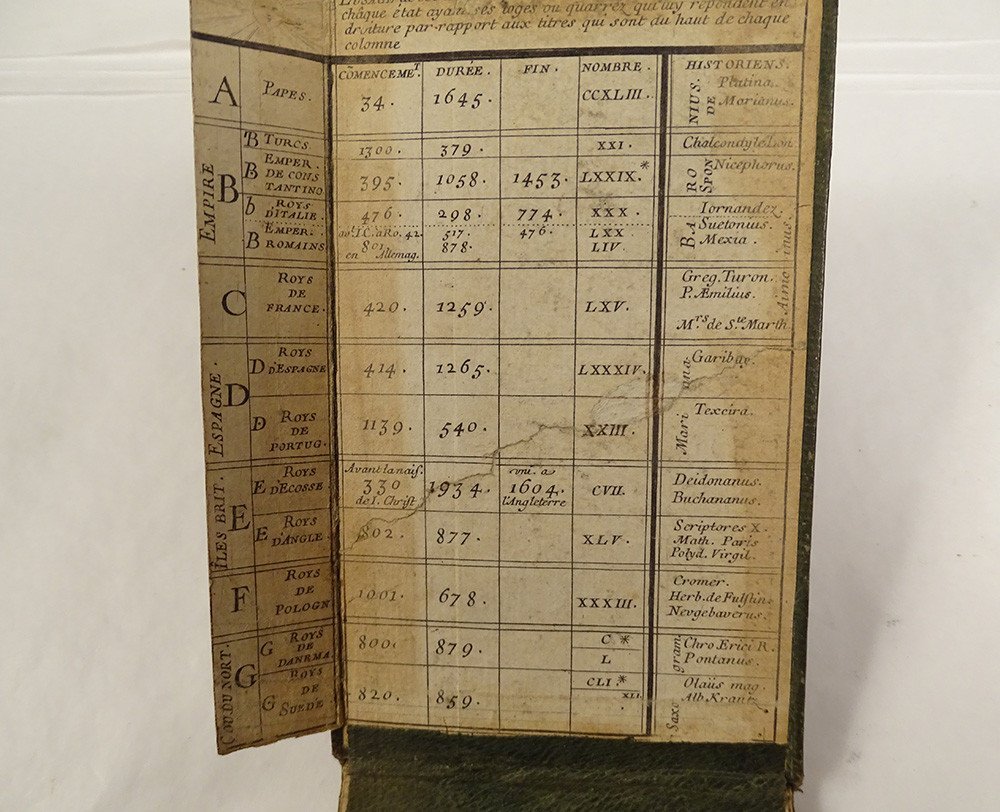 chaque état ayant ses loges ou quarrez qui luy repondent en
droiture par-rapport aux titres qui sont du haut de chaque
colomne
COMENCEMET. DURÉE. FIN. NOMBRE. HISTORIENS.
A PAPES. 34. 1645. CCXLIII. Platina.
NIUS. DE Marianus.
EMPIRE B
B TURCS 1300. 379. XXI. Chalcondyle
B EMPER. DE CONSTANTINO 395. 1058. 1453. LXXIX.* Nicephorus.
RO SPON
b ROYS D'ITALIE. 476. 298. 774. XXX. Iornandez.
B EMPER. ROMAINS av. I.C. aRo. 42. 517. 476. LXX Suetonius.
801. en Allemag. 878. LIV. Mexia.
BA
C ROYS DE FRANCE. 420. 1259. LXV. Greg. Turon.
P. Æmilius.
Mrs. de Ste Marth
ESPAGNE. D
D ROYS D'ESPAGNE 414. 1265. LXXXIV. Garibay.
D ROYS DE PORTUG. 1139. 540. XXIII. Texeira.
Mari ana
ÎLES BRIT. E
E ROYS D'ECOSSE Avant la nais. 330 de I. Christ 1934. uni. a 1604. l'Angleterre CVII. Deidonanus.
Buchananus.
E ROYS D'ANGLE. 802. 877. XLV. Scriptores X.
Math. Paris
Polyd. Virgil.
F ROYS DE POLOGN 1001. 678. XXXIII. Cromer.
Herb. de Fulstin.
Neugebaverus.
COU. DU NORT. G
G ROYS DE DANEMA. 800. 879. C * Chro. Erici R.
L Pontanus.
G ROYS DE SUEDE 820. 859. CLI.* Olaüs mag.
XLI. Alb. Krantz
Saxo gram.